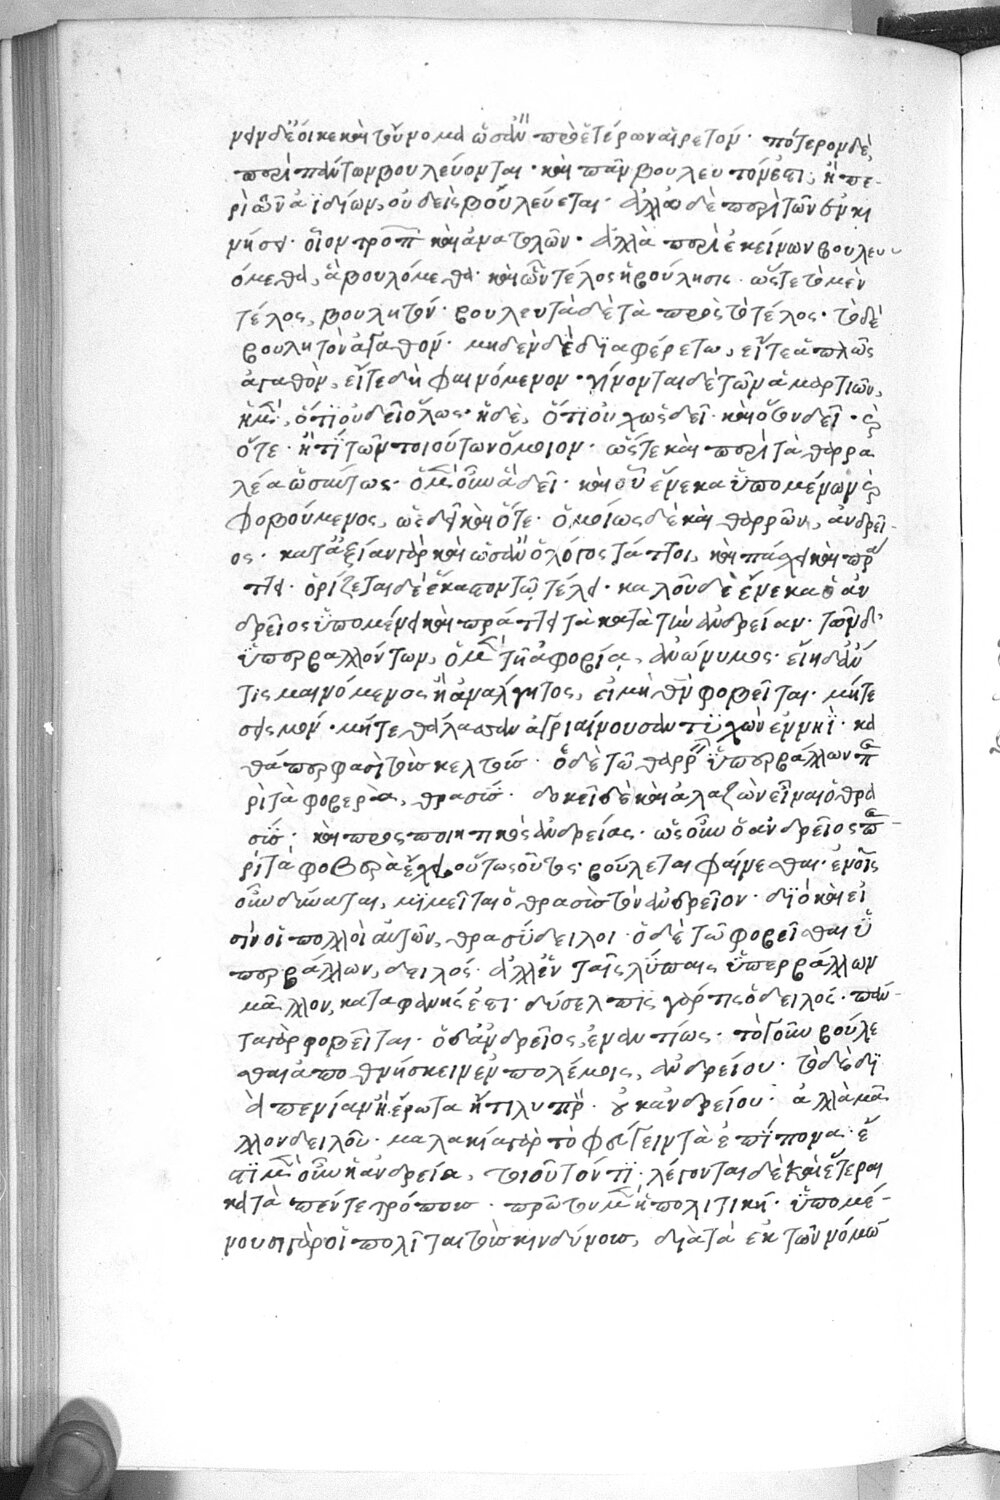 μαινδὲ ἔοικε καὶ τοὔνομα ὡσανεὶ πρὸ ἑτέρων αἱρετόν· πότερον δὲ
περὶ πάντων βουλεύονται· καὶ πᾶν βουλευτόν ἐστι, ἢ πε-
ρὶ ἀϊδίων, οὐδεὶς βουλεύεται· ἀλλ' οὐδὲ περὶ τῶν ἐν κι
νήσει· οἷον τροπ καὶ ἀνατολῶν· ἀλλὰ περὶ ἐκείνων βουλευ-
όμεθα, ἃ βουλόμεθα· καὶ ὧν τέλος ἡ βούλησις· ὥστε τὸ μὲν
τέλος, βουλητόν· βουλευτὰ δὲ τὰ πρὸς τὸ τέλος· τὸ δὲ
βουλητὸν ἀγαθόν· μηδὲν δὲ διαφέρετω, εἴτε ἁπλῶς
ἀγαθὸν, εἴτε δὴ φαινόμενον· γίνονται δὲ τῶν ἁμαρτιῶν,
ἡ μὲν, ὅτι οὐ δεῖ ὅλως· ἡ δὲ, ὅτι οὐχ ὡς δεῖ· καὶ ὅτου δεῖ· καὶ
ὅτε· ἤ τι τῶν τοιούτων ὅμοιον· ὥστε καὶ περὶ τὰ θαρρα
λέα ὡσαύτως· ὁ μὲν οὖν ἃ δεῖ· καὶ οὗ ἕνεκα ὑπομένων καὶ
φοβούμενος, ὡς δεῖ καὶ ὅτε· ὁμοίως δὲ καὶ θαρρῶν, ἀνδρεῖ-
ος· κατ' ἀξίαν γὰρ καὶ ὡς ἂν ὁ λόγος τάττοι, καὶ πάσχει καὶ πρά
ττει· ὁρίζεται δὲ ἕκαστον τῷ τέλει· καλοῦ δὲ ἕνεκα ὁ ἀν
δρεῖος ὑπομένει καὶ πράττει τὰ κατὰ τὴν ἀνδρείαν· τῶν δ'
ὑπερβαλλόντων, ὁ μὲν τῇ ἀφοβίᾳ, ἀνώνυμος· εἴη δ' ἄν
τις μαινόμενος ἢ ἀνάλγητος, εἰ μηθὲν φοβεῖται· μήτε
σεισμόν· μήτε θάλασσαν ἀγριαίνουσαν τύχων ἐμμηϊ· κα
θάπερ φασὶ τοὺς κελτούς· ὁ δὲ τῷ θαρρεῖν ὑπερβάλλων πε
ρὶ τὰ φοβερὰ, θρασύς· δοκεῖ δὲ καὶ ἀλαζὼν εἶναι ὁ θρα
σύς· καὶ προσποιητικὸς ἀνδρείας· ὡς οὖν ὁ ἀνδρεῖος πε-
ρὶ τὰ φοβερὰ ἔχει, οὕτως οὗτος βούλεται φαίνεσθαι· ἐν οἷς
οὖν δύναται, μιμεῖται ὁ θρασὺς τὸν ἀνδρεῖον· διὸ καὶ εἰ
σὶν οἱ πολλοὶ αὐτῶν, θρασύδειλοι· ὁ δὲ τῷ φοβεῖσθαι ὑ
περβάλλων, δειλός· ἀλλ' ἐν ταῖς λύπαις ὑπερβάλλων
μᾶλλον, καταφανής ἐστι· δύσελπις γάρ τις ὁ δειλός· πάν-
τα γὰρ φοβεῖται· ὁ δ' ἀνδρεῖος, ἐναντίως· τὸ γοῦν βούλε
σθαι ἀποθνήσκειν ἐν πολέμοις, ἀνδρείου· τὸ δὲ δι
ὰ πενίαν ἢ ἔρωτα ἤ τι λυπηρὸν οὐκ ἀνδρείου· ἀλλὰ μᾶ
λλον δειλοῦ· μαλακία γὰρ τὸ φεύγειν τὰ ἐπίπονα· ἔ
στι μὲν οὖν ἡ ἀνδρεία, τοιοῦτόν τι· λέγονται δὲ καὶ ἕτεραι
κατὰ πέντε τρόπους· πρῶτον μὲν ἡ πολιτική· ὑπομέ-
νουσι γὰρ οἱ πολῖται τοὺς κινδύνους, διὰ τὰ ἐκ τῶν νόμων